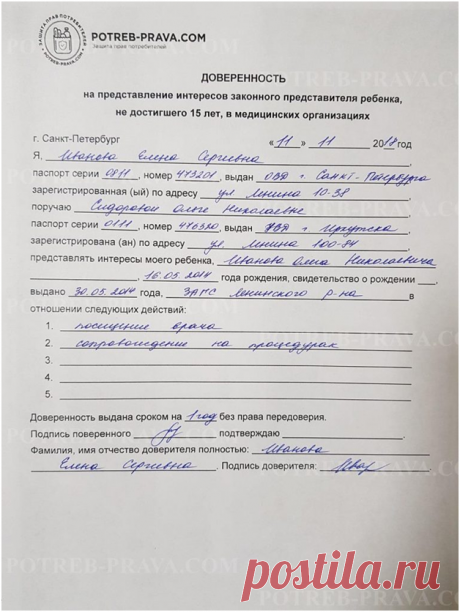 ЗАЩИТА ПРАВ ПОТРЕБИТЕЛЕЙ
POTREB-PRAVA.COM
Защита прав потребителей
ДОВЕРЕННОСТЬ
на представление интересов законного представителя ребенка,
не достигшего 15 лет, в медицинских организациях
г. Санкт-Петербург « 11 » 11 2018 год
Я, Иванова Елена Сергиевна ,
паспорт серии 0811 , номер 473201 , выдан ОВД г. Санкт-Петербурга
зарегистрированная (ый) по адресу ул Ленина 10-38 ,
поручаю Сидоровой Ольге Николаевне ,
паспорт серии 0111 , номер 476320 , выдан г Иркутска ,
зарегистрирована (ан) по адресу ул Ленина 100-84 ,
представлять интересы моего ребенка, Иванова Олега Николаевича
, 16.05.2014 года рождения, свидетельство о рождении ,
выдано 30.05.2014 года, ЗАГС Ленинского р-на в
отношении следующих действий:
1. посещение врача
2. сопровождение на процедурах
3.
4.
5.
Доверенность выдана сроком на 1 год без права передоверия.
Подпись поверенного подтверждаю .
Фамилия, имя отчество доверителя полностью: Иванова
Елена Сергиевна . Подпись доверителя:
POTREB-PRAVA.COM
postila.ru